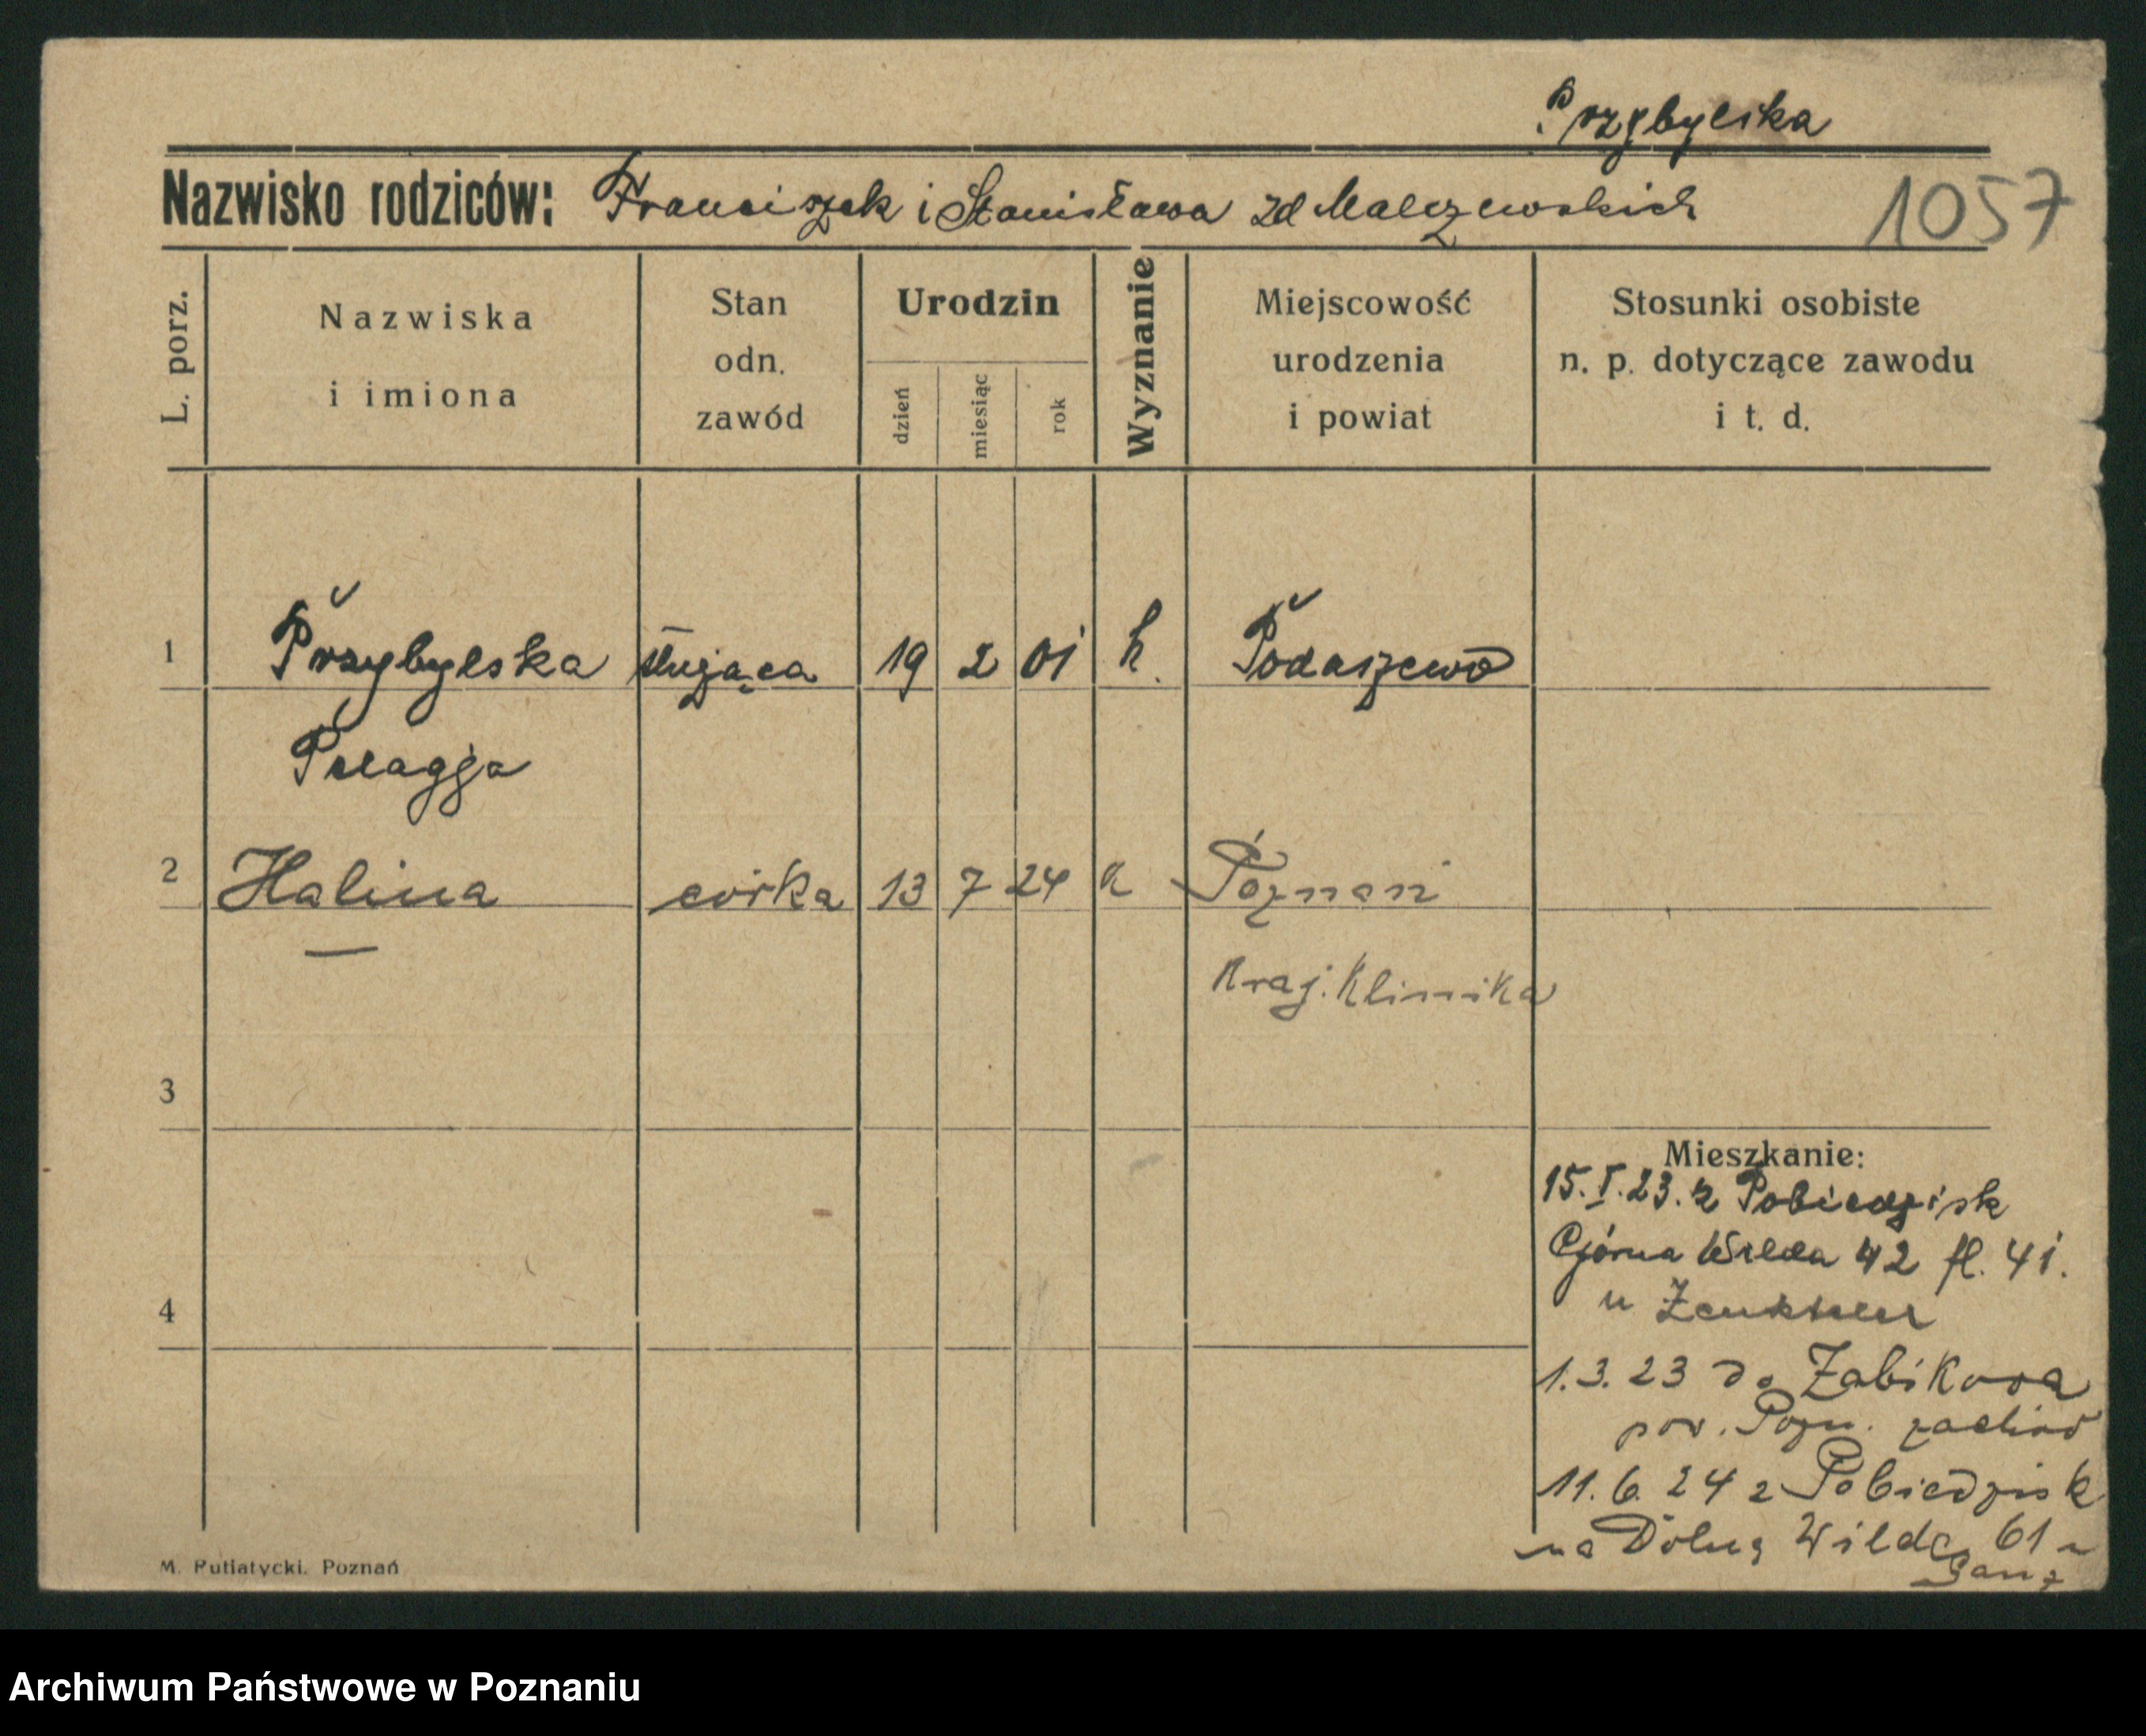 Przybylska
Nazwisko rodziców: Franciszek i Stanisława zd Malczewskich 1057
L. porz.
Nazwiska
i imiona
Stan
odn.
zawód
Urodzin
dzień
miesiąc
rok
Wyznanie
Miejscowość
urodzenia
i powiat
Stosunki osobiste
n. p. dotyczące zawodu
i t. d.
1 Przybylska służąca 19 2 01 k. Podaszewo
Pelagja
2 Halina córka 13 7 24 k Poznań
Kraj. Klinika
3
Mieszkanie:
15. I. 23. z Pobiedzisk
Górna Wilda 42 fl. 41.
u
4
1.3.23 do Żabikova
pow. Pozn. zachód
11.6.24 z Pobiedzisk
na Dolną Wildę 61 u
M. Putiatycki. Poznań
Archiwum Państwowe w Poznaniu